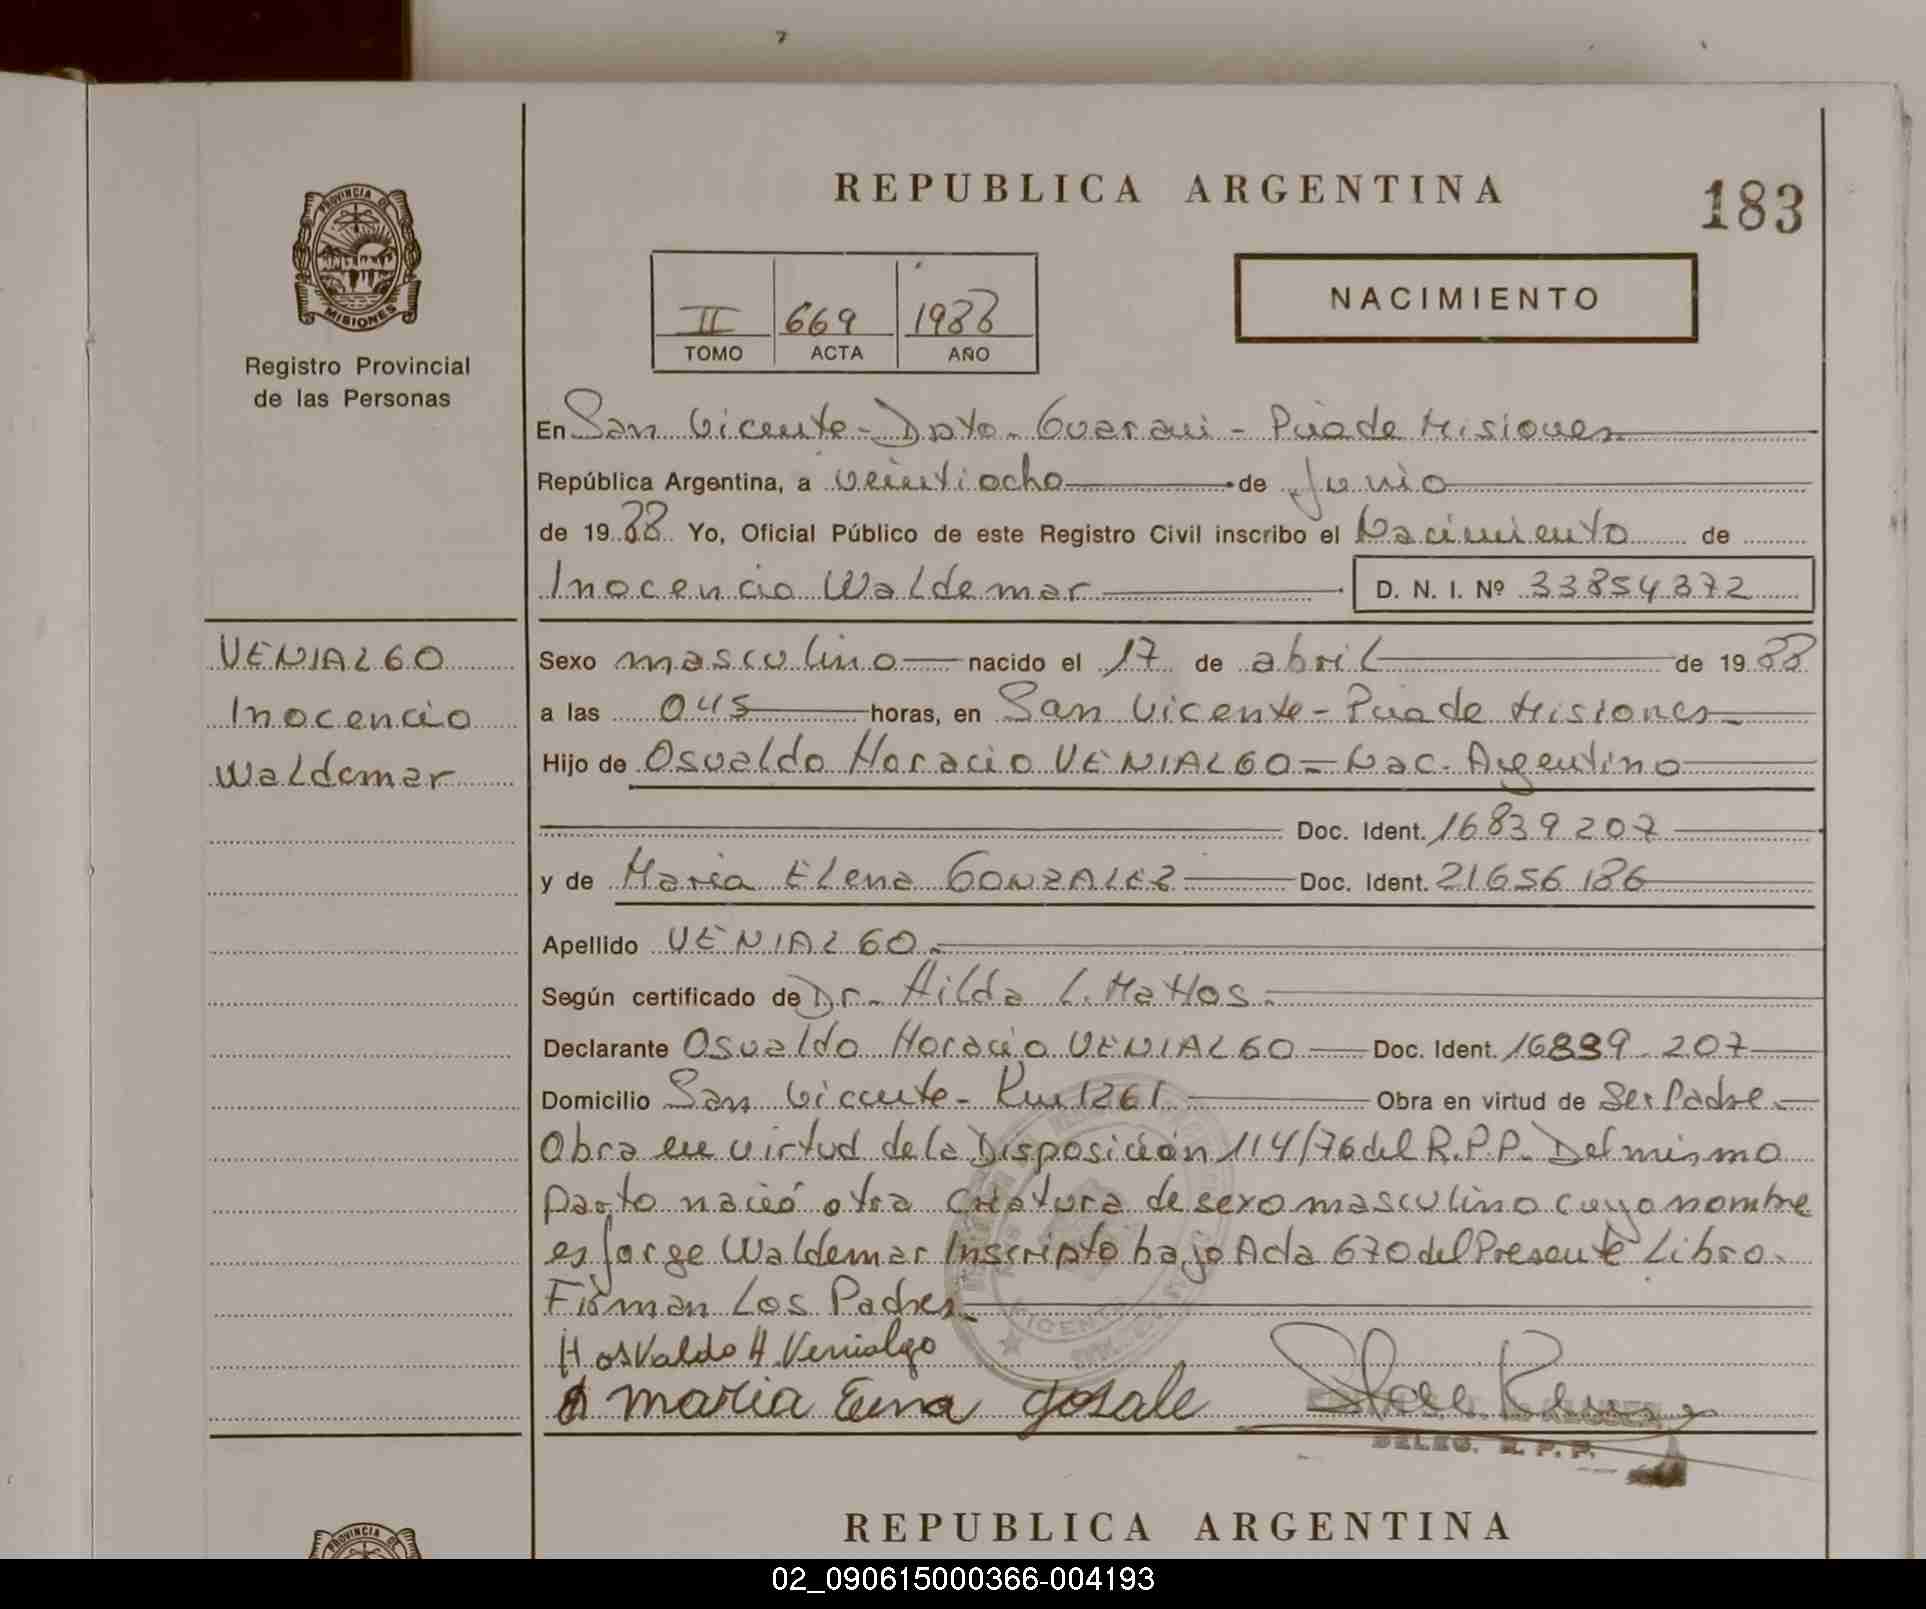 REPUBLICA ARGENTINA
183
PROVINCIA DE
MISIONES
Registro Provincial
de las Personas
II 669 1988
TOMO ACTA AÑO
NACIMIENTO
En San Vicente - Dpto. Guarani - Pcia de Misiones
República Argentina, a veintiocho de Junio
de 1988 Yo, Oficial Público de este Registro Civil inscribo el Nacimiento de
Inocencio Waldemar D. N. I. Nº 33854372
VENIALGO
Inocencio
Waldemar
Sexo masculino nacido el 17 de abril de 1988
a las 045 horas, en San Vicente - Pcia de Misiones
Hijo de Osvaldo Horacio VENIALGO = Nac. Argentino
Doc. Ident. 16839207
y de Maria Elena GONZALEZ Doc. Ident. 21656186
Apellido VENIALGO.
Según certificado de Dr. Hilda L. Mattos.
Declarante Osvaldo Horacio VENIALGO Doc. Ident. 16839.207
Domicilio San Vicente - Km 1261 Obra en virtud de Ser Padre.
Obra en virtud de la Disposición 114/76 del R.P.P. Del mismo
parto nació otra criatura de sexo masculino cuyo nombre
es Jorge Waldemar Inscripto bajo Acta 670 del Presente Libro.
Firman Los Padres.
H osValdo H. Venialgo
maria Eena gosale
VICENTE
DELEG. R. P. P.
REPUBLICA ARGENTINA
PROVINCIA
02_090615000366-004193